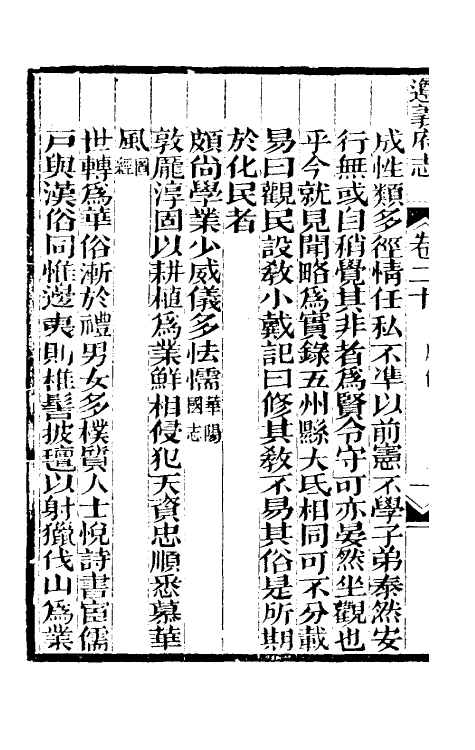 遵義府志　卷二十　風俗　一
成性類多徑情任私不準以前憲不學子弟泰然安
行無或自稍覺其非者爲賢令守可亦晏然坐觀也
乎今就見聞略爲實錄五州縣大氐相同可不分載
易曰觀民設敎小戴記曰修其敎不易其俗是所期
於化民者
頗尚學業少威儀多怯懦華陽國志
敦龐淳固以耕植爲業鮮相侵犯天資忠順悉慕華
風圖經
世轉爲華俗漸於禮男女多樸質人士悅詩書宦儒
戶與漢俗同惟邊夷則椎髻披氊以射獵伐山爲業